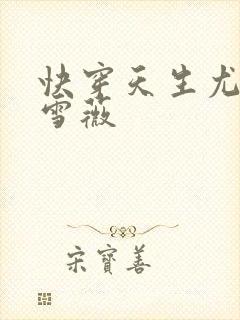 快穿天生尤
雪薇
宋寶善